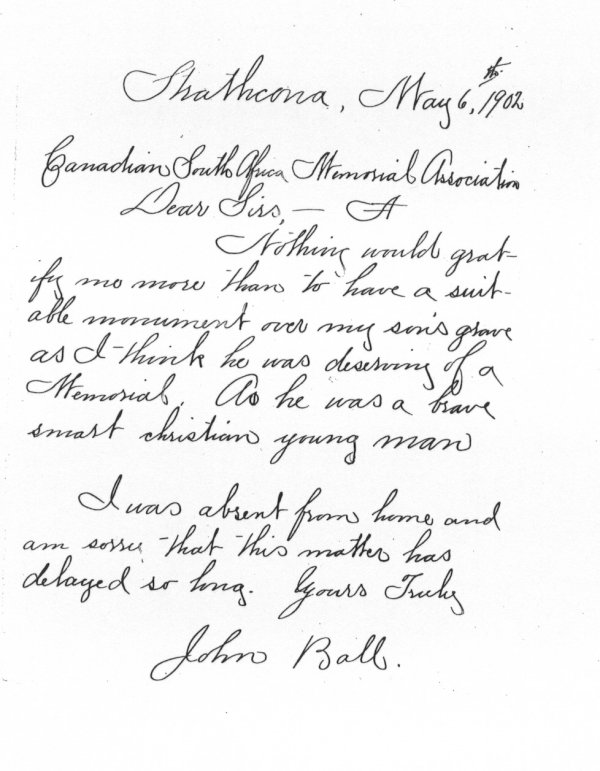 Strathcona, May 6th, 1902
Canadian South Africa Memorial Association
Dear Sirs, —
Nothing would grat-
ify me more than to have a suit-
able monument over my son's grave
as I think he was deserving of a
Memorial. As he was a brave
smart christian young man
I was absent from home and
am sorry that this matter has
delayed so long. Yours Truly
John Ball.